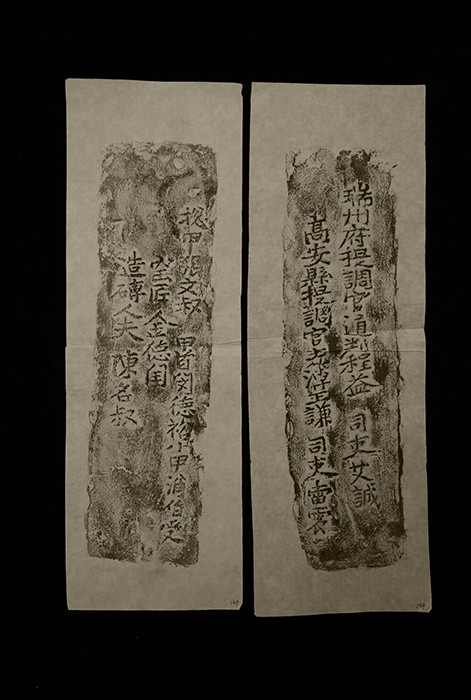 瑞州府提調官通判程益 司吏艾誠
高安縣提調官主簿王謙 司吏雷
捴甲張文叔 甲首刘德裕小甲伯受
窑匠金德閏
造磚人夫陳名叔